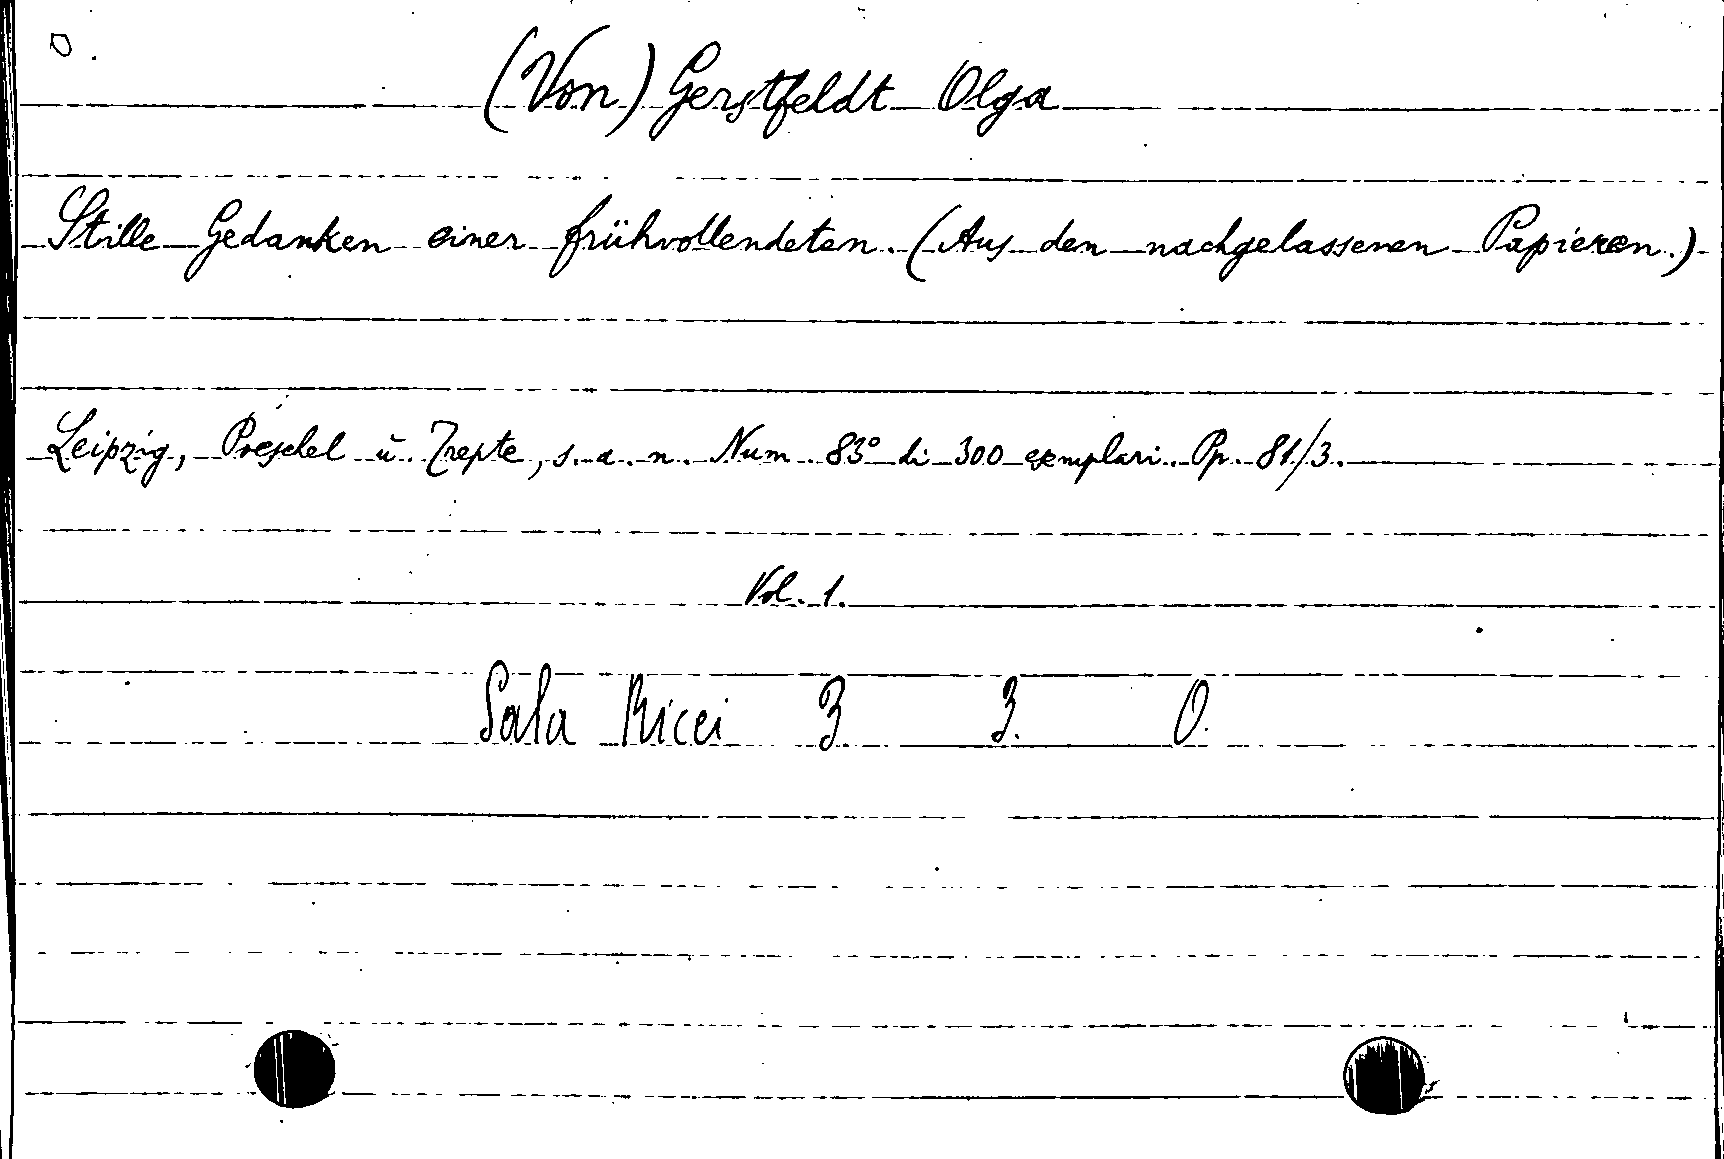 O.
(Von) Gerstfeldt Olga
Stille Gedanken einer frühvollendeten. (Aus den nachgelassenen Papieren.)
Leipzig, Poeschel ü. Trepte, s. a. n. Num. 83° di 300 esemplari. Pp. 81/3.
Vol. 1.
Sala Ricci 3. 3. O.